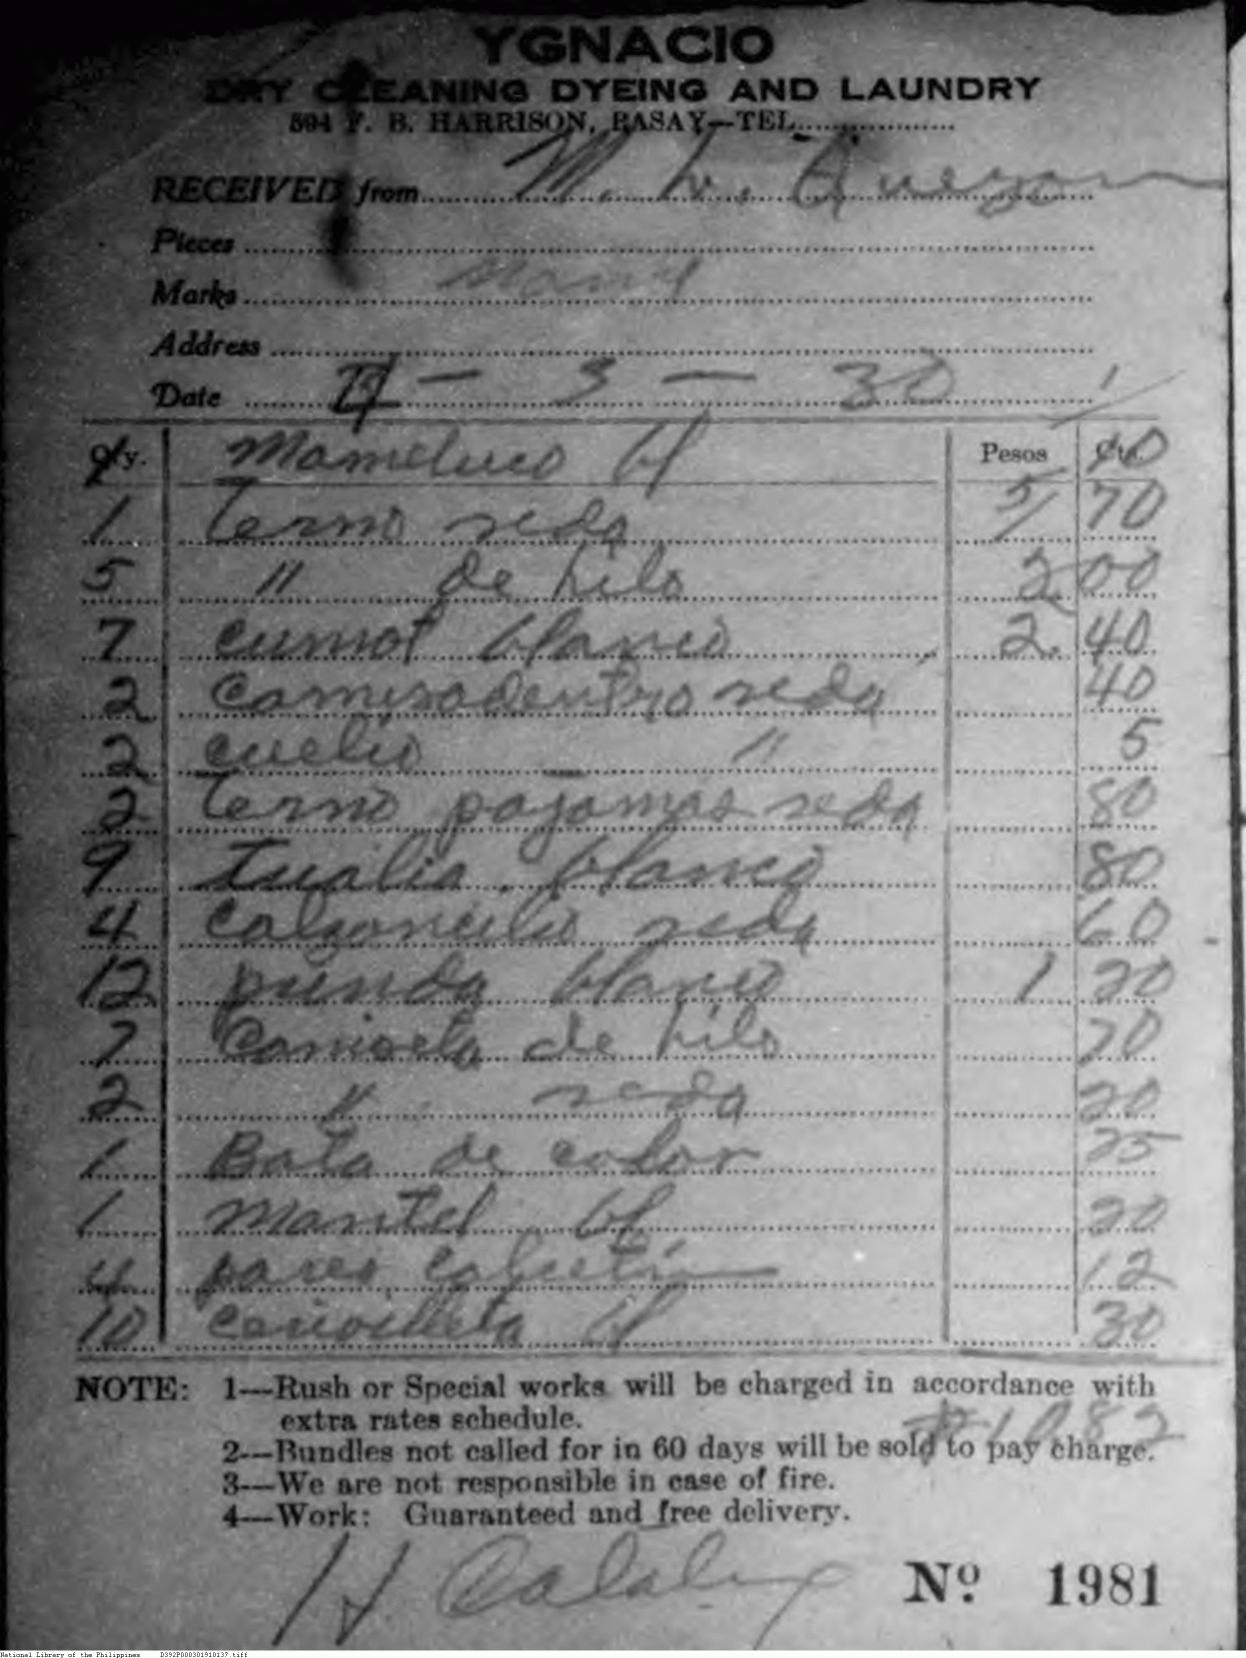 YGNACIO
DRY CLEANING DYEING AND LAUNDRY
594 F. B. HARRISON, PASAY—TEL
RECEIVED from M. L. Quezon
Pieces
Marks
Address
Date 4 - 3 - 30
Qty. Mameluco bl Pesos Cts. 10
1 Terno seda 5/ 70
5 " de hilo 2 00
7 blanco 2. 40
2 Camisadentro seda 40
2 cuello " 5
2 Terno pajamas seda 80
9 tualia blanco 80
4 Calsoncilio seda 60
12 blanco 1 20
7 Camiseta de hilo 70
2 " seda 20
1 Bata de color 25
1 Mantel bl 20
4 pares calcetin 12
10 bl 30
NOTE: 1—Rush or Special works will be charged in accordance with
extra rates schedule.
₱10.82
2—Bundles not called for in 60 days will be sold to pay charge.
3—We are not responsible in case of fire.
4—Work: Guaranteed and free delivery.
H.
Nº 1981
National Library of the Philippines D392P000301910137.tiff